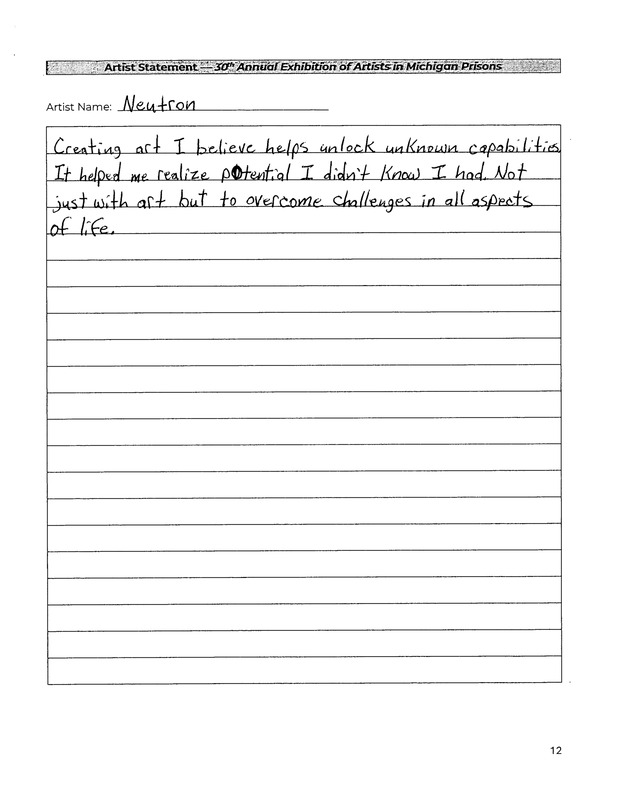 Artist Statement — 30th Annual Exhibition of Artists in Michigan Prisons
Artist Name: Neutron
Creating art I believe helps unlock unknown capabilities
It helped me realize potential I didn't know I had. Not
just with art but to overcome challenges in all aspects
of life.
12